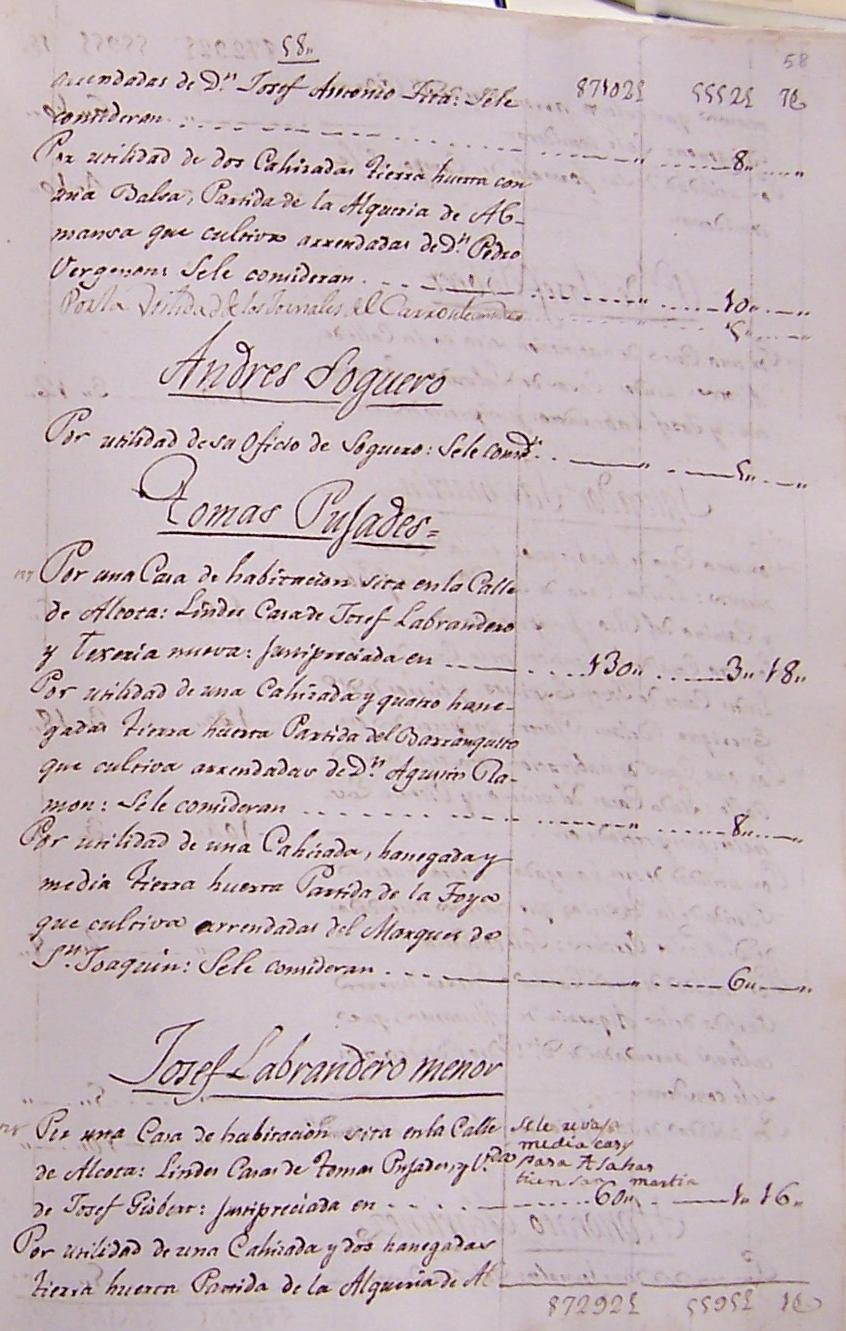 58„
58
arrendadas de D.n Josef Antonio Fita: Sele 871025 55525 16
consideran „ 8„ „
Por utilidad de dos Cahizadas tierra huerta con
una Balsa, Partida de la Alqueria de Al-
mansa que cultiva arrendadas de D.n Pedro
Vergeron: Sele consideran „ 10„ „
Por la Vtilidad de los Jornales del Carro 5„ „
Andres Soguero
Por utilidad de su Oficio de Soguero: Sele consid.n „ 5„ „
Tomas Pujades=
127 Por una Casa de habitacion sita en la Calle
de Alcota: Lindes Casa de Josef Labrandero
y Texeria nueva: Justipreciada en 130„ 3„ 18„
Por utilidad de una Cahizada y quatro hane-
gadas tierra huerta Partida del Barranquito
que cultiva arrendadas de D.n Agustin Ra-
mon: Sele consideran „ 8„ „
Por utilidad de una Cahizada, hanegada y
media tierra huerta Partida de la Foya
que cultiva arrendadas del Marques de
S.n Joaquin: Sele consideran „ 6„ „
Josef Labrandero menor
128 Por una Casa de habitacion sita en la Calle
de Alcota: Lindes Casas de Tomas Pujades, y V.da
de Josef Gisbert: Justipreciada en 60„ 1„ 16„
sele revaja
media casa
para
martin
Por utilidad de una Cahizada y dos hanegadas
tierra huerta Partida de la Alqueria de Al
872925 55955 16